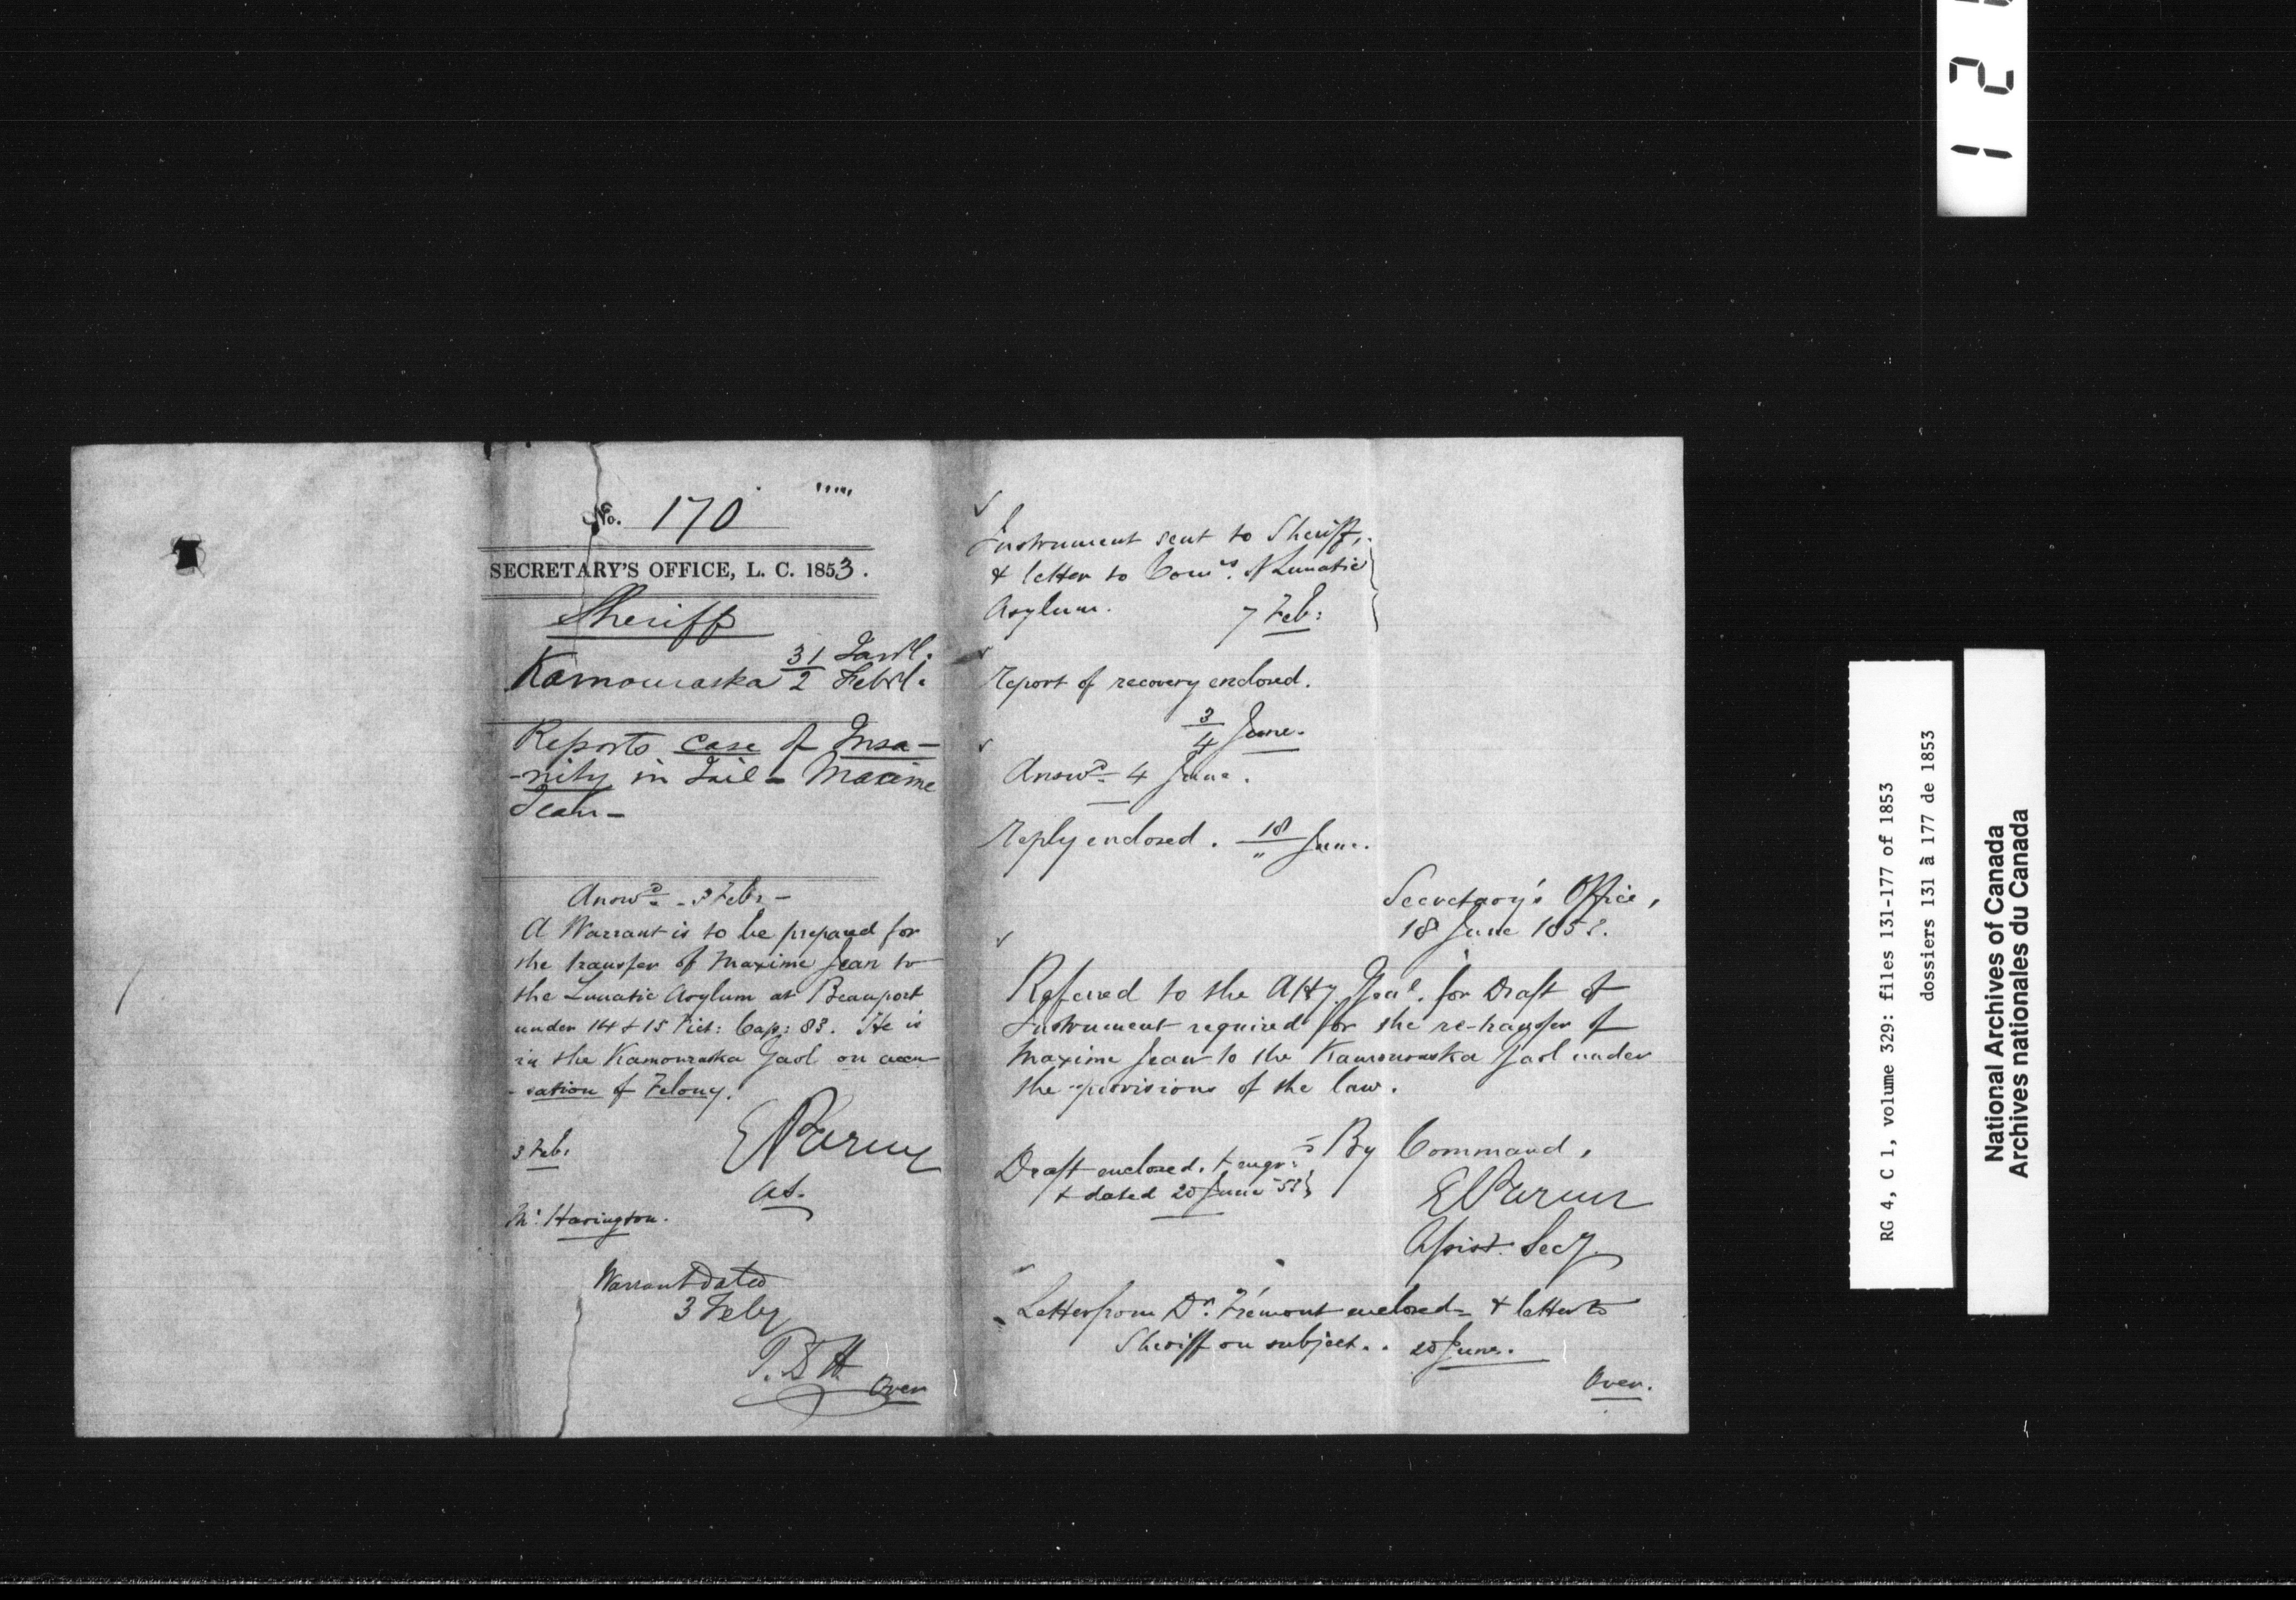 No. 170
SECRETARY'S OFFICE, L. C. 1853.
Sheriff
Kamouraska 31 Jany.
2 Feby.
Reports case of Insa-
-nity in Jail - Maxime
Jean -
Answd. - 3 Feb: -
A Warrant is to be prepared for
the transfer of Maxime Jean to
the Lunatic Asylum at Beauport
under 14 & 15 Vict: Cap: 83. He is
in the Kamouraska Gaol on accu-
-sation of Felony.
3 Feb:
EParent
A.S.
Mr. Harington.
Warrant dated
3 Feby
T.D.H
Over
Instrument sent to Sheriff,
& letter to Comrs. of Lunatic
Asylum. 7 Feb:
Report of recovery enclosed.
3/4 June.
Answd. 4 June.
Reply enclosed. 18/" June.
Secretary's Office,
18 June 1853.
Referred to the Atty. Genl. for Draft of
Instrument required for the re-transfer of
Maxime Jean to the Kamouraska Gaol under
the provisions of the law.
By Command,
EParent
Assist. Secy.
Draft enclosed, & engrd.
& dated 20 June '53
Letter from Dr. Frémont enclosed - & letter to
Sheriff on subject.. 20 June.
Over.
1 2
RG 4, C 1, volume 329: files 131-177 of 1853
dossiers 131 à 177 de 1853
National Archives of Canada
Archives nationales du Canada